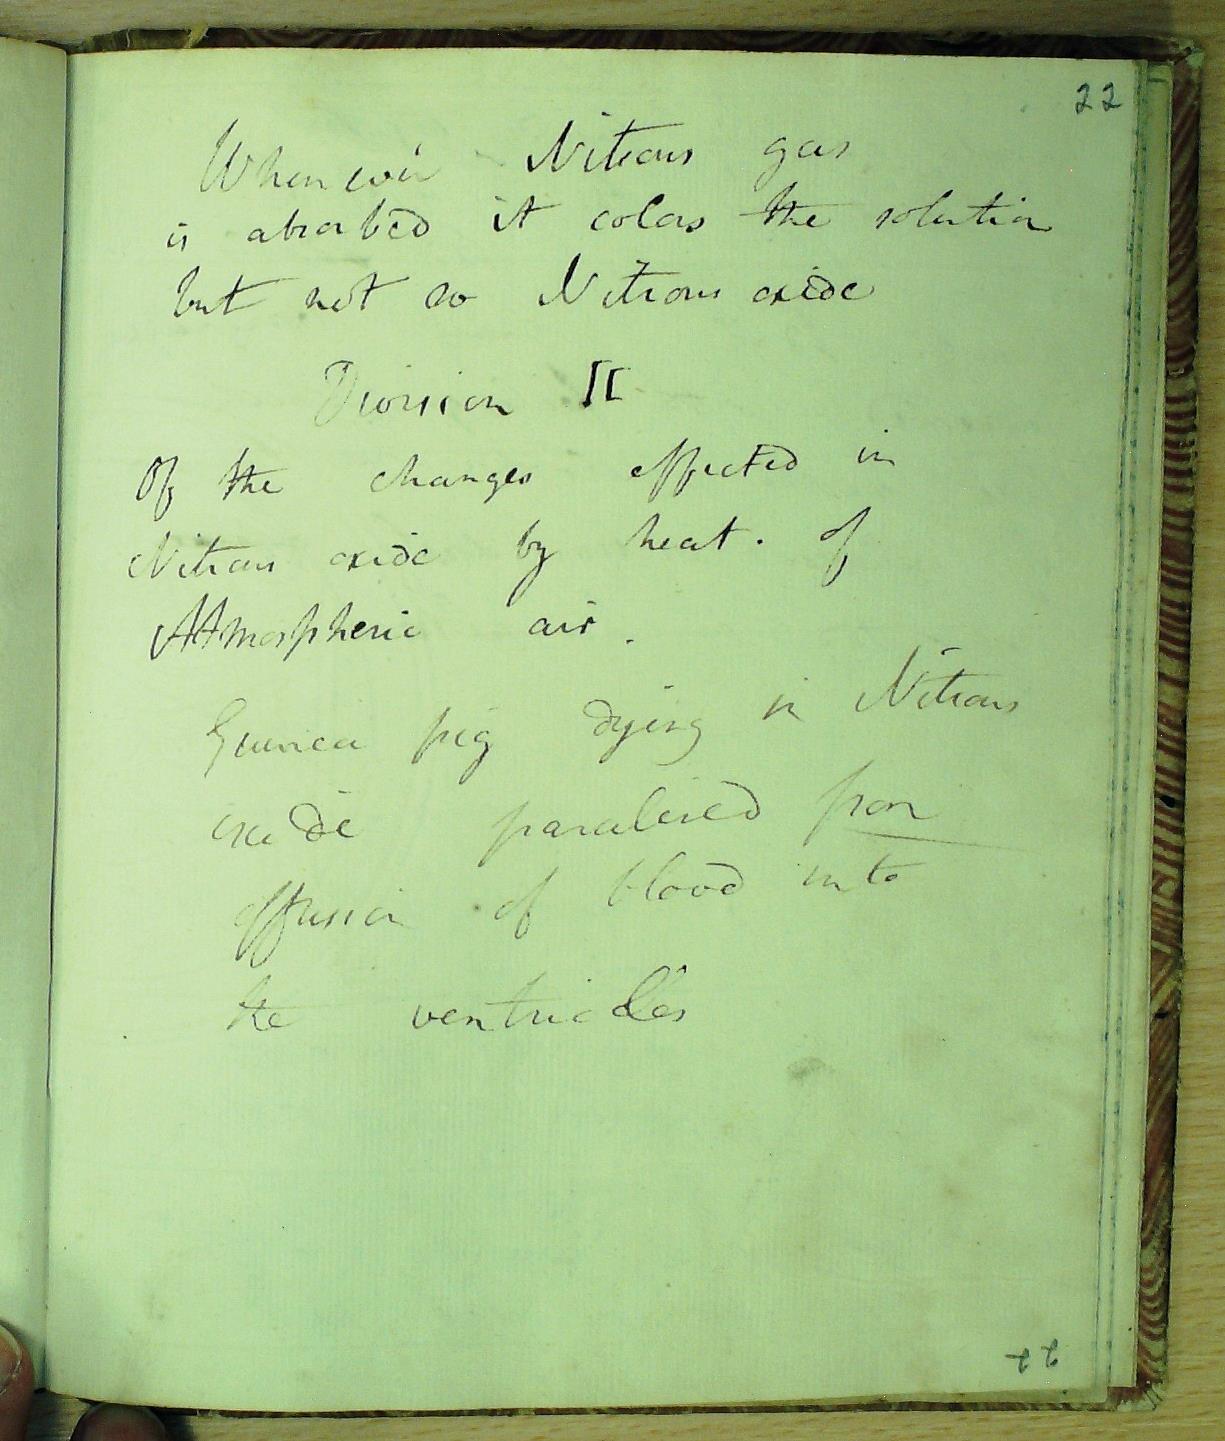 22
Whenever Nitrous gas
is absorbed it colors the solution
but not so Nitrous oxide
Division II
Of the changes effected in
Nitrous oxide by heat. of
Atmospheric air.
Guinea pig dying in Nitrous
oxide paralised from
effusion of blood into
the ventricles